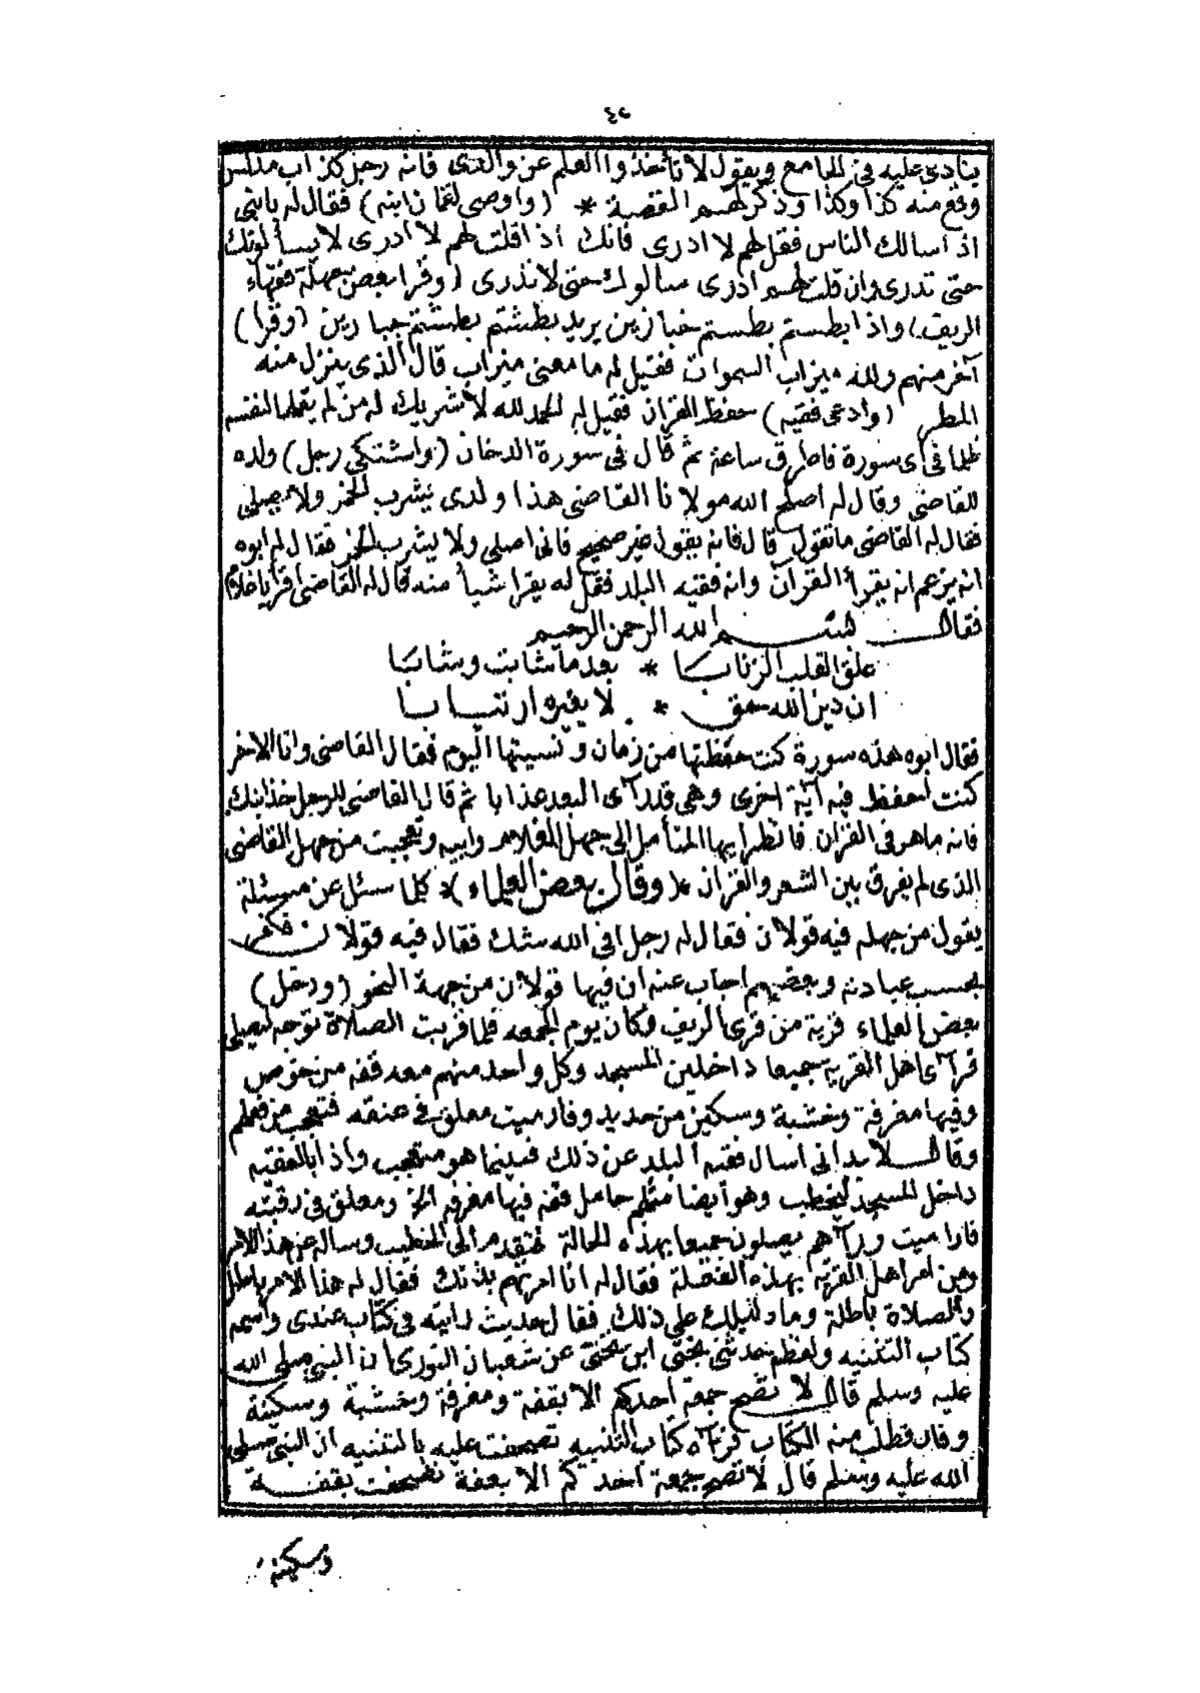 ٤٢
ينادى عليه فى الجامع ويقول لا تأخذوا العلم عن والدى فانه رجل كذاب مدلس
وقع منه كذا وكذا وذكر لهم القصة * (واوصى لقمان ابنه) فقال له يا بنى
اذ اسالك الناس فقل لهم لا ادرى فانك اذ اقلت لهم لا ادرى لا يسألونك
حتى تدرى وان قلت لهم ادرى سالوك حتى لا تدرى (وقرا بعض جهلة فقهاء
الريف) واذا بطستم بطستم خبازين يريد بطشتم بطشتم جبارين (وقرا)
آخر منهم ولله ميزاب السموات فقيل له ما معنى ميزاب قال الذى ينزل منه
المطر (وادعى فقيه) حفظ القران فقيل له الحمد لله لا شريك له من لم يقلها لنفسه
ظلما فى اى سورة فاطرق ساعة ثم قال فى سورة الدخان (واشتكى رجل) ولده
للقاضى وقال له اصلح الله مولانا القاضى هذا ولدى يشرب الخمر ولا يصلى
فقال له القاضى ما تقول قال فانه يقول غير صحيح فانى اصلى ولا يشرب الخمر فقال له ابوه
انه يزعم انه يقرأ القرآن وانه فقيه البلد فقل له يقرا شيأ منه قال له القاضى اقرا يا غلام
فقال بسم الله الرحمن الرحيم
علق القلب الربابا * بعد ما شابت وشابا
ان دين الله حق * لا يغيره ارتيابا
فقال ابوه هذه سورة كنت حفظتها من زمان ونسيتها اليوم فقال القاضى وانا الاخر
كنت احفظ فيه آية اخرى وهى قد رآى البعد عذابا ثم قال القاضى للرجل خذ ابنك
فانه ماهر فى القران فانظر ايها المتأمل الى جهل الغلام وابيه وتعجبت من جهل القاضى
الذى لم يفرق بين الشعر والقران * (وقال بعض العلماء) * كلما سئل عن مسئلة
يقول من جهله فيه قولان فقال له رجل افى الله شك فقال فيه قولان فكفر
بحسب عبادته وبعضهم اجاب عنه ان فيها قولان من جهة النحو (ودخل)
بعض العلماء قرية من قرى الريف وكان يوم الجمعه فلما قربت الصلاة توجه ليصلى
فرآى اهل القريه جميعا داخلين المسجد وكل واحد منهم معه قفه من خوص
وفيها مغرفة وخشبة وسكين من حديد وفار ميت معلق فى عنقه فتعجب من فعلهم
وقال لا بد انى اسال فقيه البلد عن ذلك فبينما هو متعجب واذا بالفقيه
داخل المسجد ليخطب وهو ايضا مثلهم حامل قفه فيها مغرفه الخ ومعلق فى رقبته
فارا ميت ورآهم يصلون جميعا بهذه الحالة فتقدم الى الخطيب وساله عن هذا الامر
ومن امر اهل القريه بهذه الفضلة فقال له انا امرتهم بذلك فقال له هذا الامر باطل
والصلاة باطلة وما دليلك على ذلك فقال حديث رايته فى كتاب عندى واسمه
كتاب التغنيه ولفظه حدثنى بختى ابن بختى عن شعبان التورى ان النبى صلى الله
عليه وسلم قال لا تصح جمعة احدكم الا بقفة ومغرفة وخشبة وسكينة
وفار فطلب منه الكتاب فرآه كتاب التنبيه تصحفت عليه بالتغنيه ان النبى صلى
الله عليه وسلم قال لا تصح جمعة احدكم الا بعفة تصحفت بقفة
وسكينة